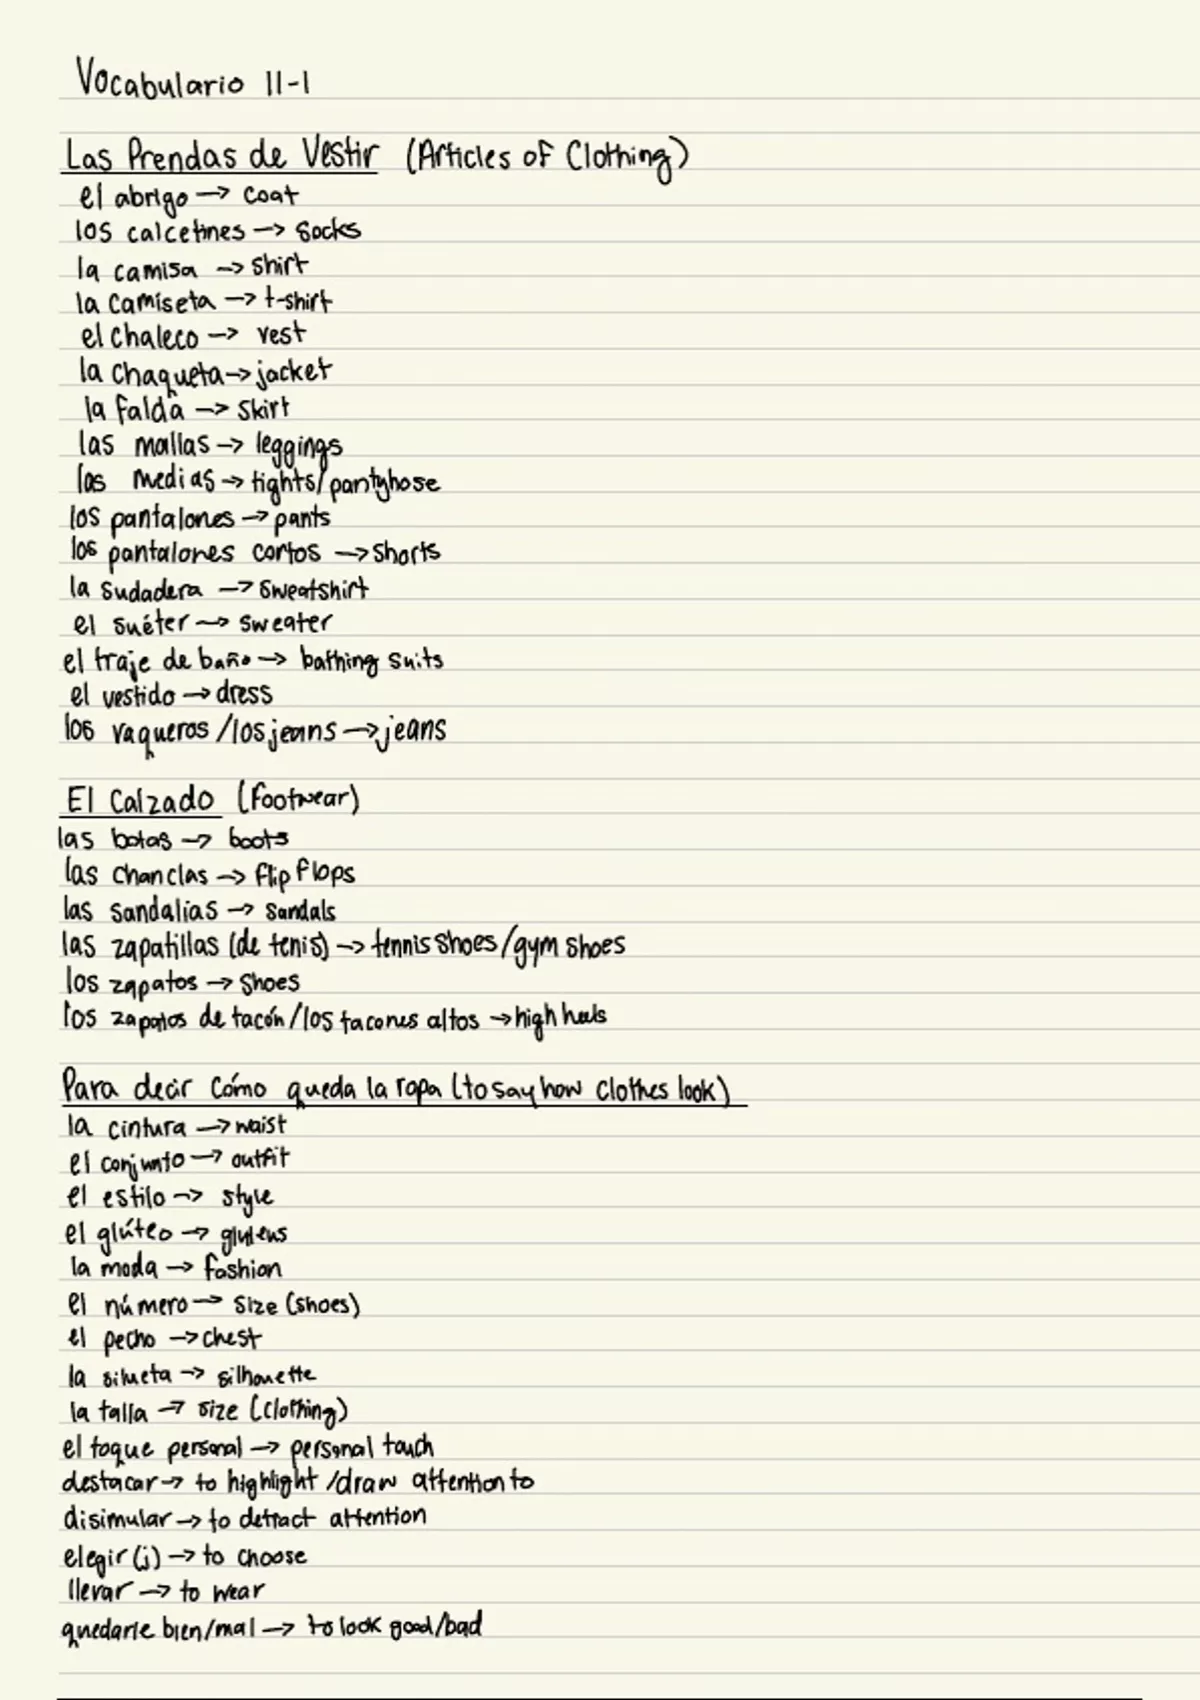 Vocabulario 11-1
Las Prendas de Vestir (Articles of Clothing)
el abrigo → coat
los calcetines → socks
la camisa → shirt
la camiseta → t-shirt
el chaleco → vest
la chaqueta → jacket
la falda → skirt
las mallas → leggings
las medias → tights/pantyhose
los pantalones → pants
los pantalones cortos → shorts
la sudadera → sweatshirt
el suéter → sweater
el traje de baño → bathing suits
el vestido → dress
los vaqueros/los jeans → jeans
El Calzado (footwear)
las botas → boots
las chanclas → flip flops
las sandalias → sandals
las zapatillas (de tenis) → tennis shoes/gym shoes
los zapatos → shoes
los zapatos de tacón/los tacones altos → high heels
Para decir cómo queda la ropa (to say how clothes look)
la cintura → waist
el conjunto → outfit
el estilo → style
el glúteo → gluteus
la moda → fashion
el número → size (shoes)
el pecho → chest
la silueta → silhouette
la talla → size (clothing)
el toque personal → personal touch
destacar → to highlight/draw attention to
disimular → to detract attention
elegir (i) → to choose
llevar → to wear
quedarle bien/mal → to look good/bad